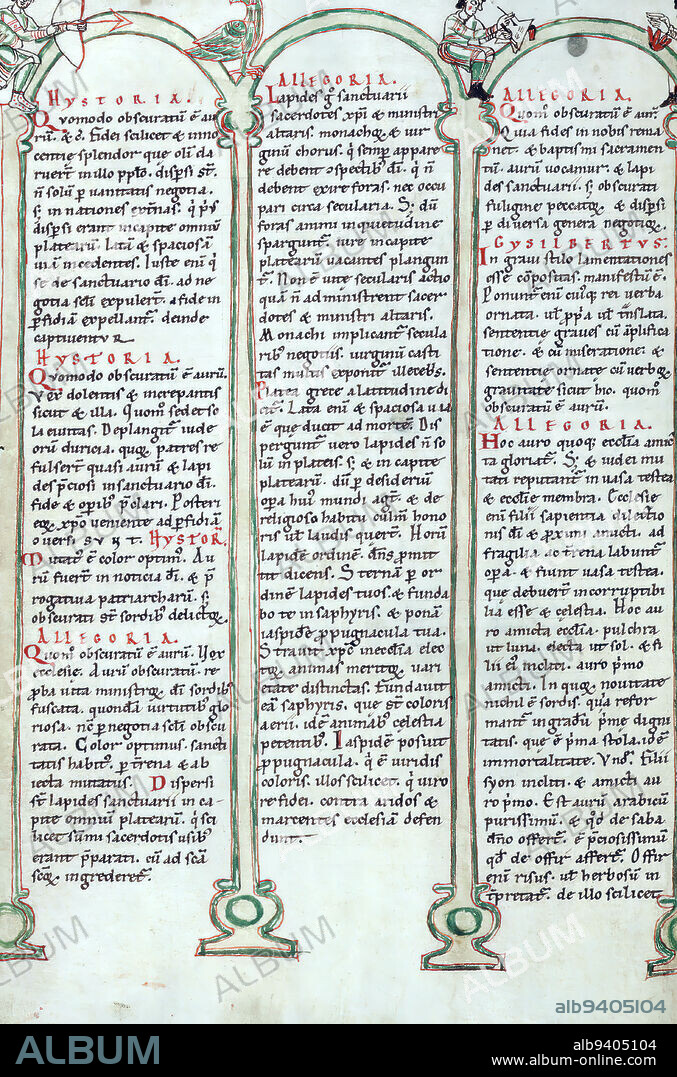 HYSTORIA.
Quomodo obscuratū ē au
rū. & c̄. Fidei scilicet & inno
centie splendor que olī da
ruerт in illo pplo. dispsi st̄.
ñ solū p uanitatis negotia.
s; in nationes ext̄nas. q̇ p̄s
dispsi erant in capite omniū
platearū. Latā & spaciosā
uiā incedentes. Iuste enī q̇
se de sanctuario dī. ad ne
gotia sc̄li expulerт. a fide in
pfidiā expellantr̄. deinde
captiuentur
HYSTORIA.
Quomodo obscuratū ē aurū.
Vox dolentis & increpantis
sicut & illa. Quom̄ sedet so
la ciuitas. Deplangitr̄ iude
orū duricia. quoꝝ patres re
fulserт quasi aurū & lapi
des p̄ciosi in sanctuario dī.
fide & opib; p̄clari. Posteri
eoꝝ xp̄o ueniente ad pfidiā
ūersi sunt. HYSTOR.
Mutatꝰ ē color optimꝰ. Au
rū fuerт in noticia dī. & p̄
rogatiua patriarcharū. s;
obscurati st̄ sordib; delictoꝝ.
ALLEGORIA.
Quom̄ obscuratū ē aurū. Uox
ecclesie. Aurū obscuratū. re
pba uita ministroꝝ dī sordib;
fuscata. quondā uirtutib; glo
riosa. nc̄ p negotia sc̄li obscu
rata. Color optimus. sancti
tatis habitꝰ. p t̄rena & ab
iecta mutatus. Dispersi
st̄ lapides sanctuarii in ca
pite omniū platearū. q̇ sci
licet sūmi sacerdotis usib;
erant p̄parati. cū ad sc̄ā
sc̄oꝝ ingrederetr̄.
ALLEGORIA.
Lapides g̊ sanctuarii
sacerdotes xp̄i & ministri
altaris. monachoꝝ & uir
ginū chorus. q̇ semp appare
re debent ɔspectib; dī. q̇ ñ
debent exire foras. nec occu
pari circa secularia. S; dū
foras animi inquietudine
sparguntr̄. iure in capite
platearū uacantes plangun
tr̄. Non ē uite secularis actio
quā ñ administrent sacer
dotes & ministri altaris.
Monachi implicantr̄ secula
rib; negotiis. uirginū casti
tas multis exponitr̄ illecebris.
Platea grece a latitudine di
citr̄. Lata enī & spaciosa uia
ē que ducit ad mortē. Dis
perguntr̄ uero lapides ñ so
lū in plateis. s; & in capite
platearū. dū p desideriū
opa huiꝰ mundi agt̄. & de
religioso habitu culm̄ hono
ris ut̄ laudis querт. Horū
lapidē ordinē dn̄s promit
tit dicens. Sternā p or
dinē lapides tuos. & funda
bo te in saphyris. & ponā
iaspidē ppugnacula tua.
Strauit xp̄c in ecclesia elec
toꝝ animas meritoꝝ uari
etate distinctas. Fundauit
eā saphyris. que st̄ coloris
aerii. idē animab; celestia
petentib;. Iaspidē posuit
ppugnacula. q̇ ē uiridis
coloris. illos scilicet. q̇ uiro
re fidei. contra aridos &
marcentes ecclesiā defen
dunt.
ALLEGORIA.
Quom̄ obscuratū ē aurū.
Quia fides in nobis rema
net. & baptismi sacramen
tū. aurū uocamur. & lapi
des sanctuarii. s; obscurati
fuligine peccatoꝝ. & dispsi
p diuersa genera negotioꝝ.
GYSILBERTVS:
In graui stilo lamentationes
esse cōpositas. manifestū ē.
Ponuntr̄ enī cuiꝰq; rei uerba
ornata. ut̄ ppa ut̄ t̄nslata.
sententie graues cū āplifica
tione. & cū miseratione. &
sententie ornate cū uerboꝝ
grauitate sicut hoc. quom̄
obscuratū ē aurū.
ALLEGORIA.
Hoc auro quoq; ecclīa amic
ta gloriatr̄. S; & iudei mu
tati reputantr̄ in uasa testea
& ecclesie membra. Ecclesie
enī filii sapientia dilectio
nis dī & pximi amicti. ad
fragilia ac t̄rena labuntr̄
opa. & fiunt uasa testea.
que debuerт incorruptibi
lia esse & celestia. Hoc au
ro amicta ecclīa. pulchra
ut luna. electa ut sol. & fi
lii eiꝰ incliti. auro p̄mo
amicti. In quoꝝ nouitate
nichil ē sordis. qua refor
mantr̄ in gradū p̄me digni
tatis. que ē p̄ma stola. idē
immortalitate. Vnd̄. Filii
syon incliti & amicti au
ro p̄mo. Est aurū arabicū
purissimū. & qd̄ de saba
dn̄o offertr̄. ē p̄ciosissimū
qd̄ de offir affertr̄. Offir
enī risus. ut̄ herbosū in
t̄pretatr̄. de illo scilicet
ALBUM
alb9405104
ALBUM
alb9405104
www.album-online.com